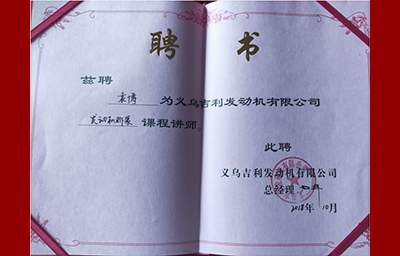 聘书
兹聘
袁博 为义乌吉利发动机有限公司
发动机拆装 课程讲师。
此聘
义乌吉利发动机有限公司
总经理
2018年10月